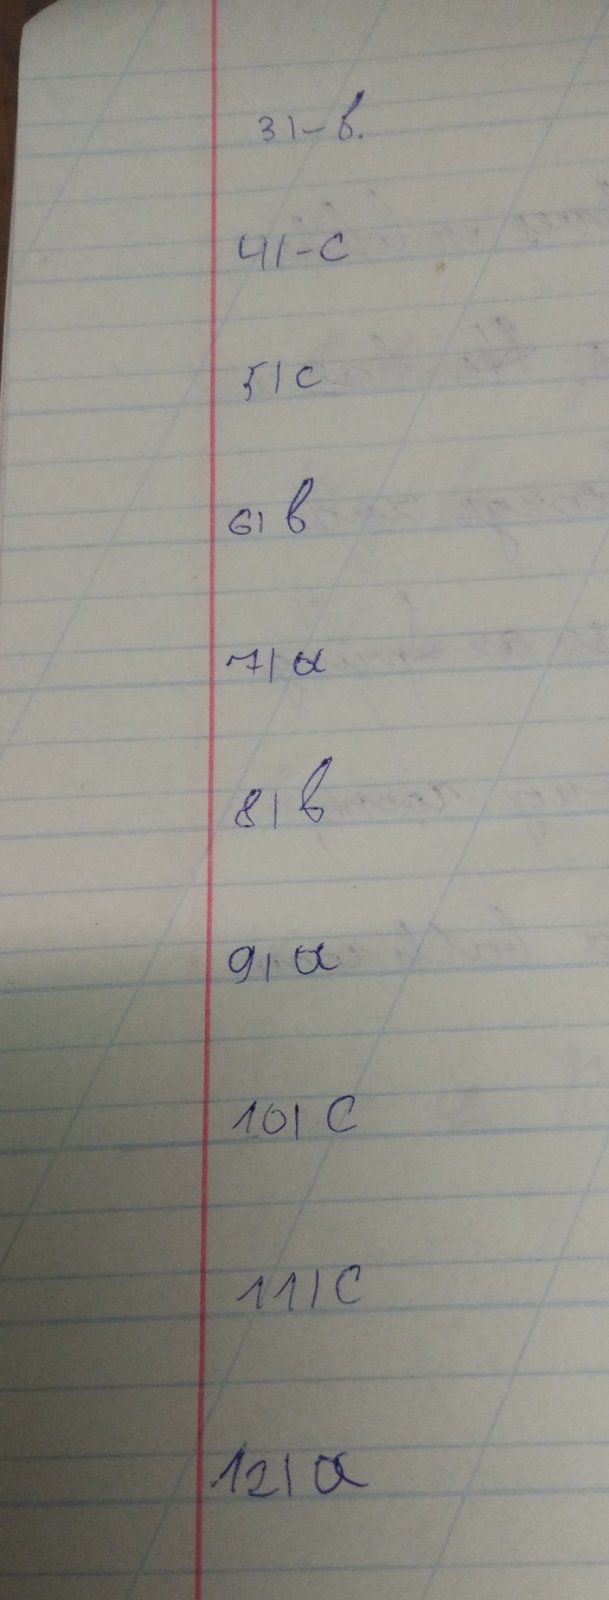 3) - b.
4) - c
5) c
6) b
7) a
8) b
9) a
10) c
11) c
12) a